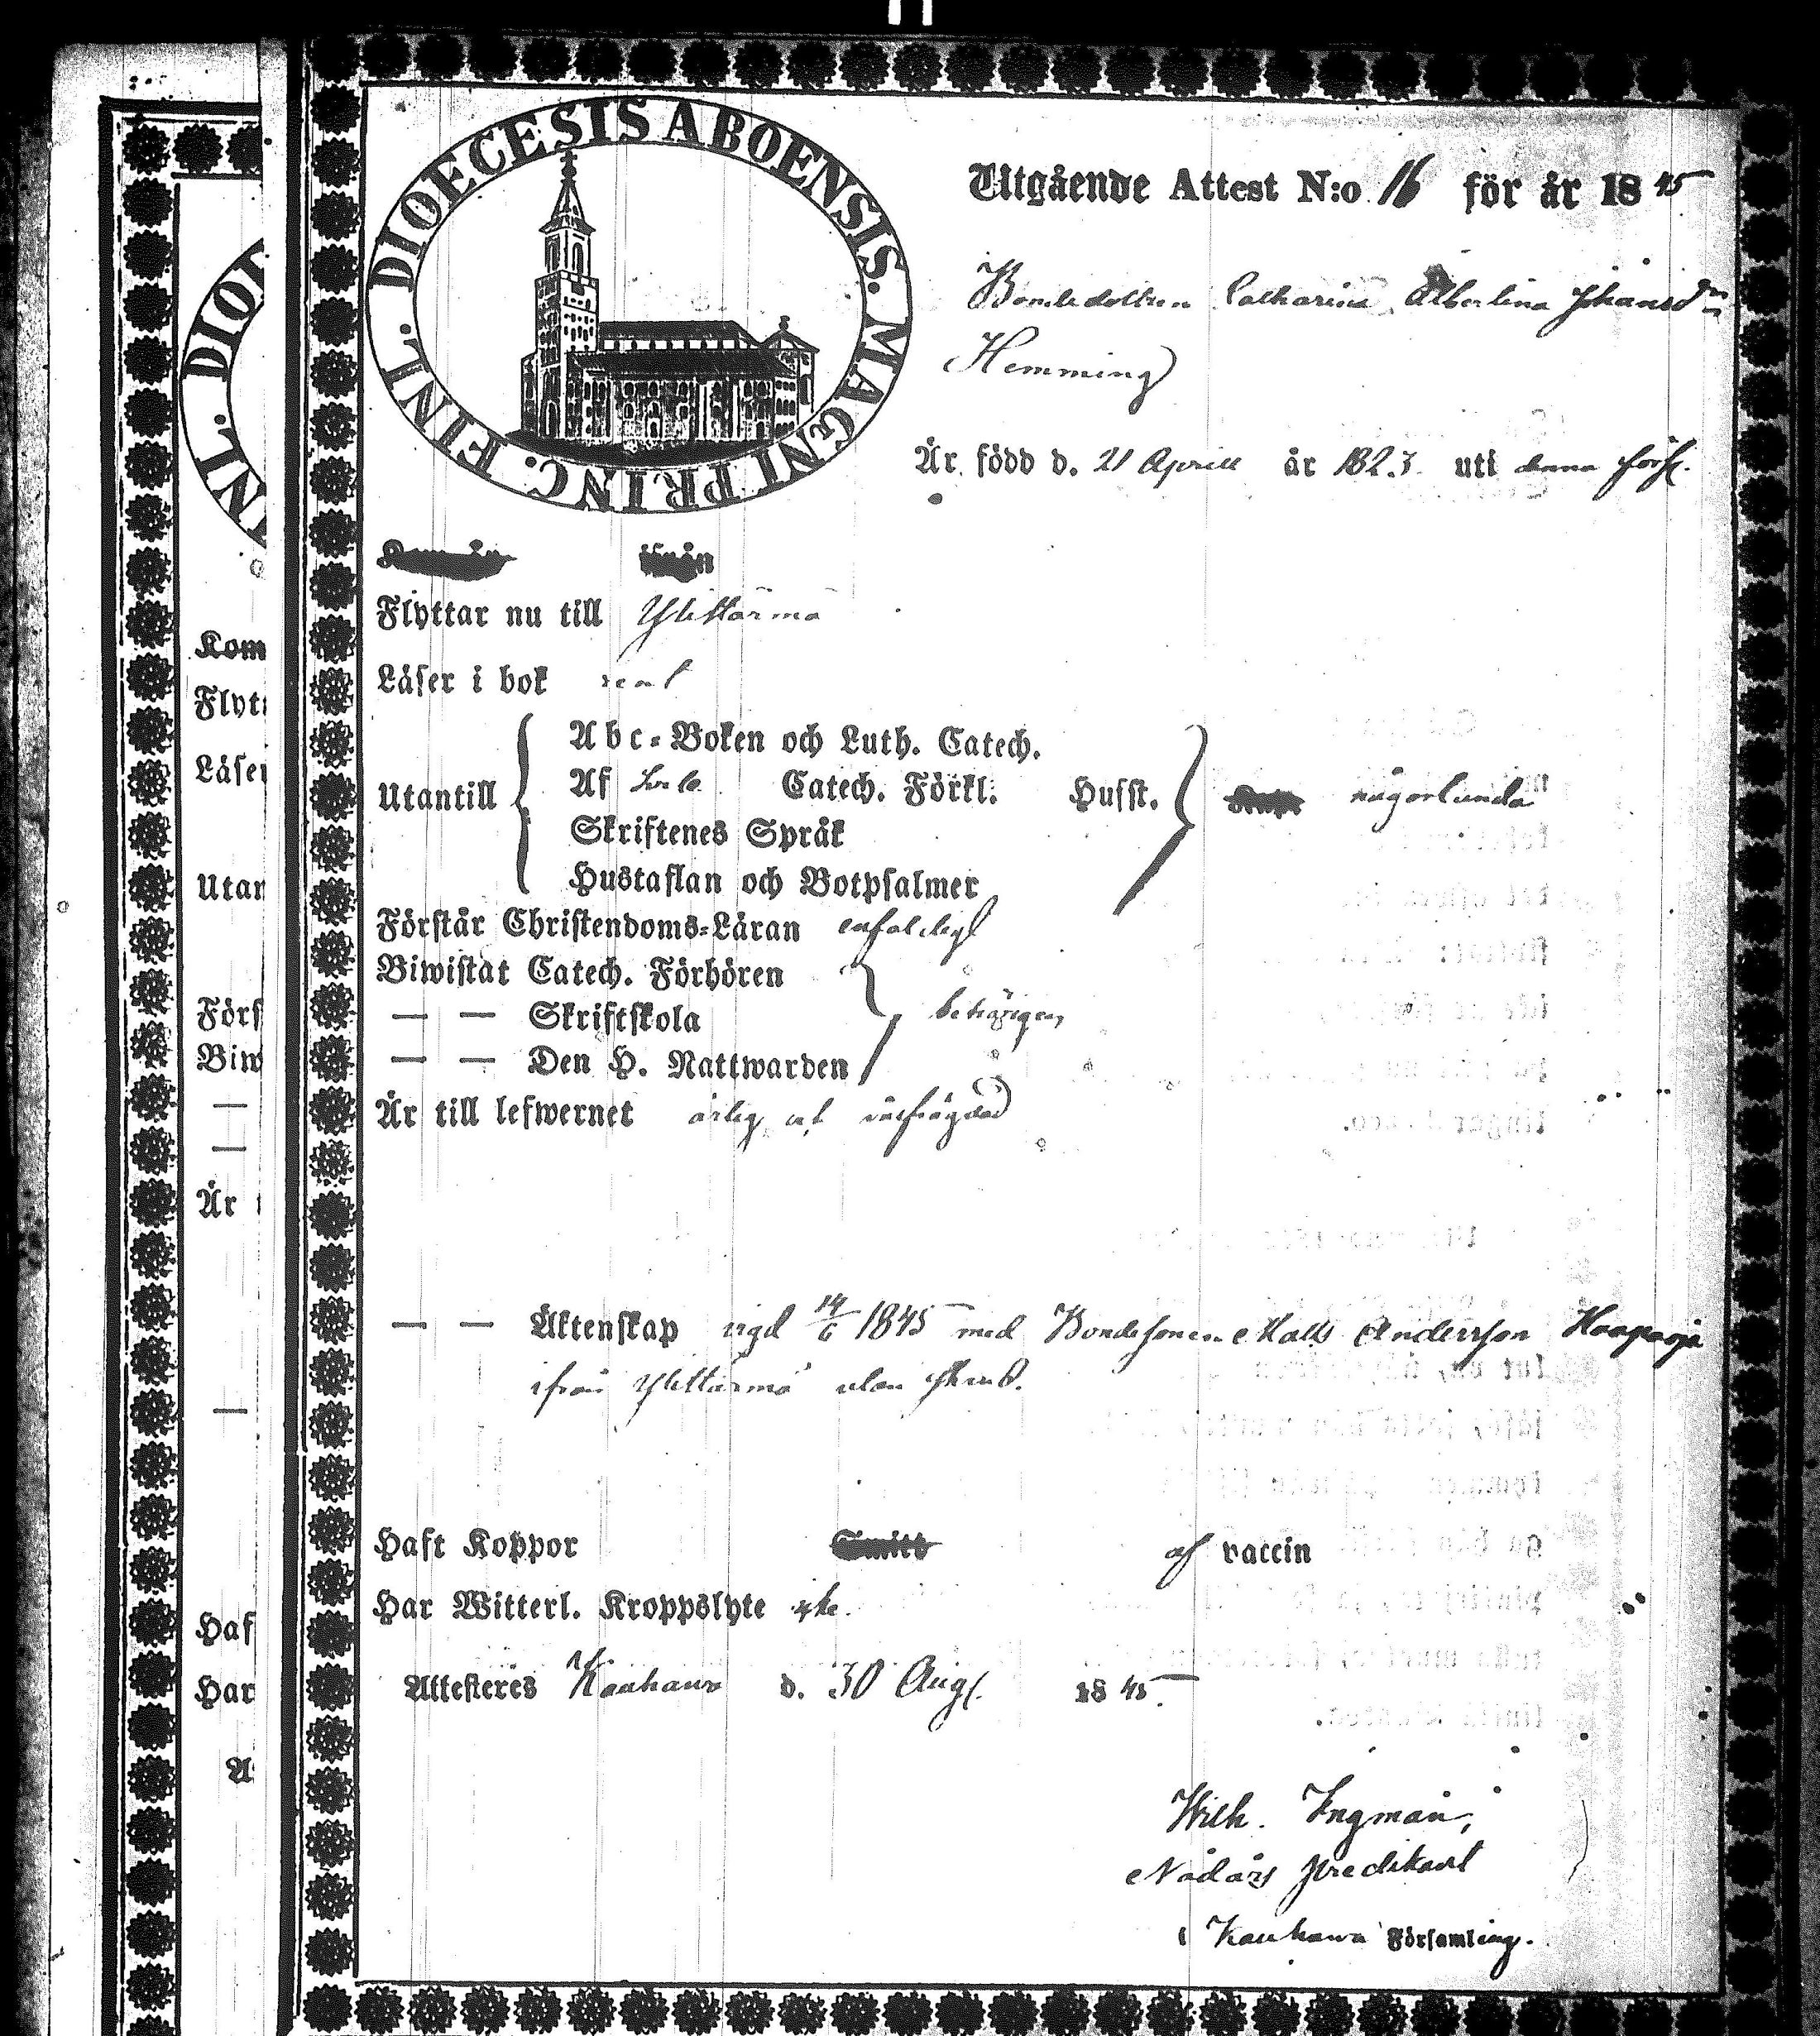 DIOECESIS ABOENSIS. MAGNI PRINC. FINL.
Utgående Attest N:o 16 för år 1845
Bondedottren Catharina Albertina Johansdr
Hemming
Är född d. 21 Aprill år 1823. uti denna förs.
ifrån
Flyttar nu till Ylihärmä
Läser i bok rent
Utantill
Abc-Boken och Luth. Catech.
Af Catech. Förkl. Husst. någorlunda
Skriftenes Språk
Hustaflan och Botpsalmer
Förstår Christendoms-Läran enfaldigt
Biwistat Catech. Förhören
— — Skriftskola behörigen
— — Den H. Nattwarden
Är till lefwernet ärlig och välfrägdad
— — Äktenskap vigd 14/6 1845 med Bondesonen Matts Andersson Haapoja
ifrån Ylihärmä utan
Haft Koppor af vaccin
Har Witterl. Kroppslyte icke.
Attesteres Kauhava d. 30 Aug. 1845.
Wilh. Ingman,
Nådårs predikant
i Kauhava Församling.
DIOE
INL.
Kom
Flytt
Läser
Utan
Förs
Biw
—
—
Är
—
Haf
Har